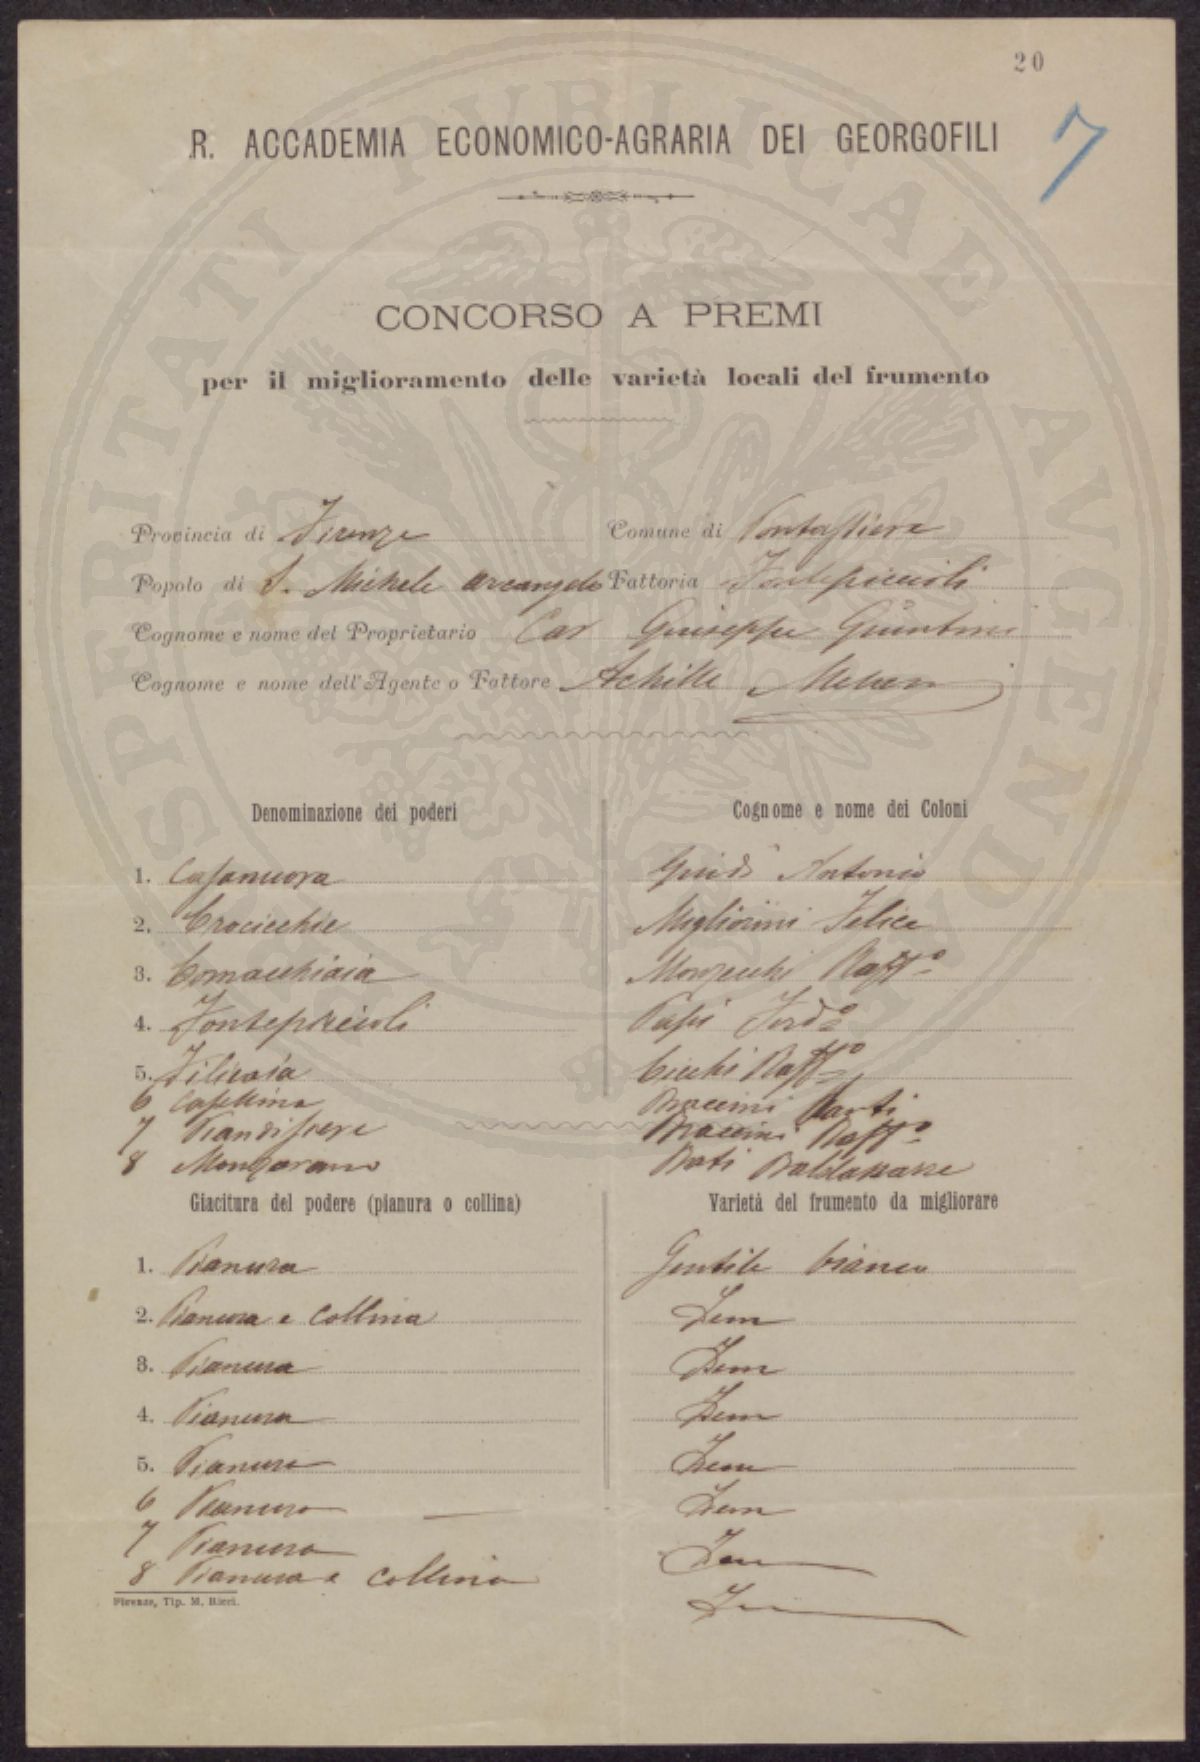 20
7
R. ACCADEMIA ECONOMICO-AGRARIA DEI GEORGOFILI
CONCORSO A PREMI
per il miglioramento delle varietà locali del frumento
Provincia di Firenze Comune di Pontassieve
Popolo di S. Michele Arcangelo Fattoria Fontepiccioli
Cognome e nome del Proprietario Cav Giuseppe Giuntini
Cognome e nome dell'Agente o Fattore Achille
Denominazione dei poderi Cognome e nome dei Coloni
1. Casanuova Guidi Antonio
2. Crocicchie Migliorini Felice
3. Cornacchiaia Monzecchi Raffo
4. Fontepiccioli Papi Ferdo
5. Filicaia Cecchi Raffo
6 Casellina Braccini Santi
7 Piandisieve Braccini Raffo
8 Monzavano Bati Baldassarre
Giacitura del podere (pianura o collina) Varietà del frumento da migliorare
1. Pianura Gentile bianco
2. Pianura e collina Idem
3. Pianura Idem
4. Pianura Idem
5. Pianura Idem
6 Pianura Idem
7 Pianura Idem
8 Pianura e collina
Firenze, Tip. M. Ricci.
PROSPERITATI PVBLICAE AVGENDAE